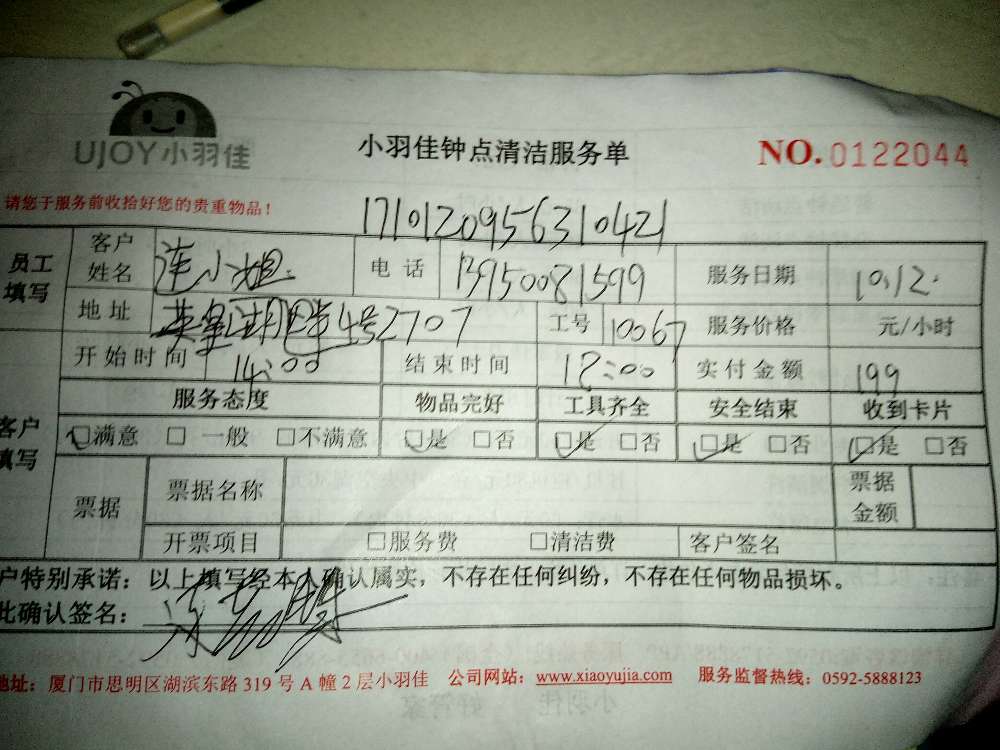 UJOY小羽佳
小羽佳钟点清洁服务单
NO.0122044
请您于服务前收拾好您的贵重物品！
1710120956310421
员工填写 客户姓名 连小姐 电话 13950081599 服务日期 10.12.
地址 4号2707 工号 10067 服务价格 元/小时
开始时间 14:00 结束时间 18:00 实付金额 199
客户填写 服务态度 物品完好 工具齐全 安全结束 收到卡片
□满意 □一般 □不满意 □是 □否 □是 □否 □是 □否 □是 □否
票据 票据名称 票据金额
开票项目 □服务费 □清洁费 客户签名
户特别承诺：以上填写经本人确认属实，不存在任何纠纷，不存在任何物品损坏。
此确认签名：
地址：厦门市思明区湖滨东路319号A幢2层小羽佳 公司网站：www.xiaoyujia.com 服务监督热线：0592-5888123